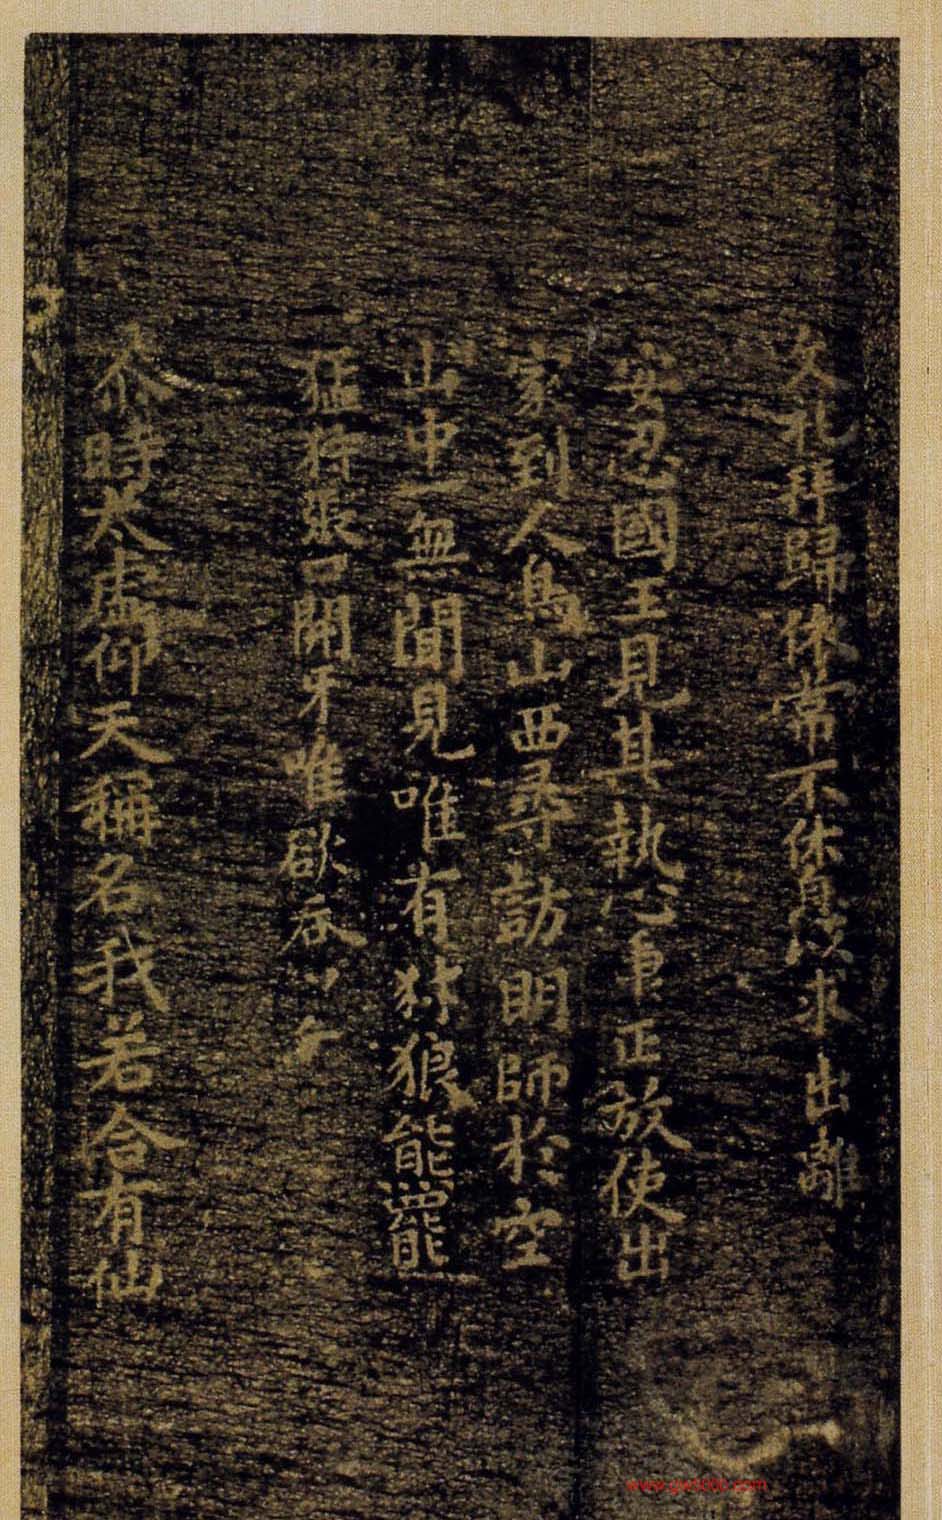 礼拜歸依常不休息後求出離
安忍國王見其執心事正放使出
家到人鳥山西尋訪明師於空
山中一無聞見唯有犲狼熊羆
猛狩張口開牙唯欲吞
命時太虚仰天稱名我若合有仙